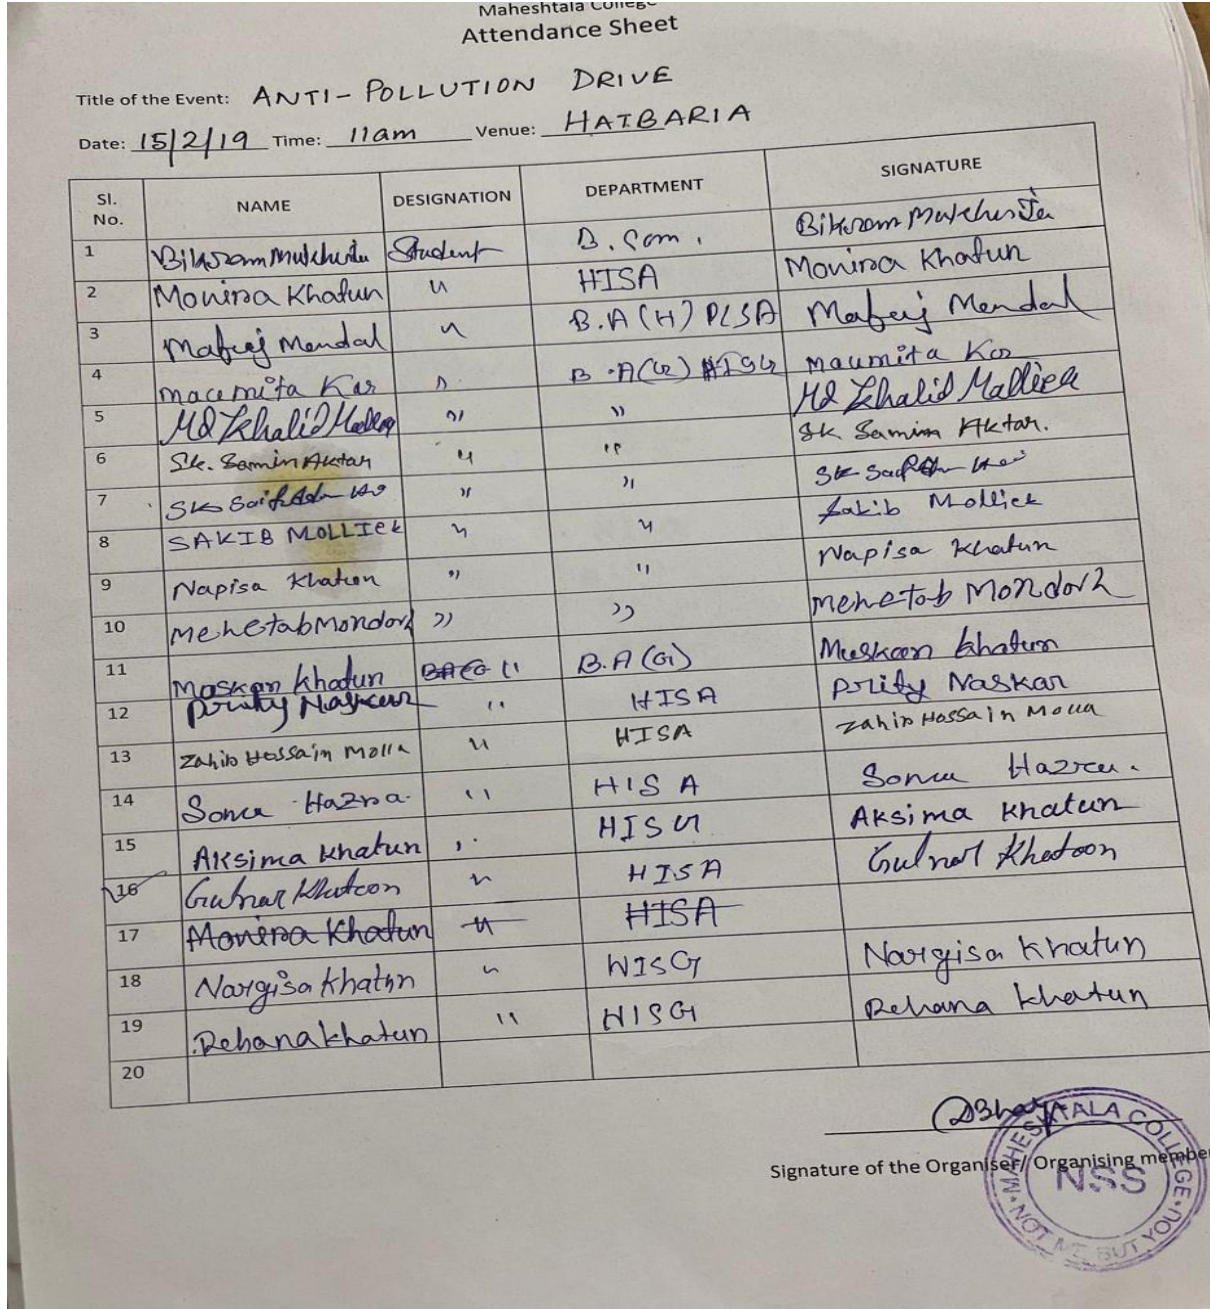 Maheshtala College
Attendance Sheet
Title of the Event: ANTI-POLLUTION DRIVE
Date: 15/2/19 Time: 11am Venue: HATBARIA
Sl. No. NAME DESIGNATION DEPARTMENT SIGNATURE
1 Bikram Student B. Com. Bikram
2 Monira Khatun " HISA Monira Khatun
3 Mafuj Mondal " B.A (H) PLSA Mafuj Mondal
4 Moumita Kar " B.A(G) HISG Moumita Kar
5 Md Khalid Mallick " " Md Khalid Mallick
6 Sk. Samim Aktar " " Sk Samim Aktar.
7 SK " " SK
8 SAKIB MOLLICK " " Sakib Mollick
9 Napisa Khatun " " Napisa Khatun
10 Mehetab " " Mehetab
11 Maskan Khatun " B.A (G) Muskan Khatun
12 Prity Naskar " HISA Prity Naskar
13 Zahir Hossain Molla " HISA Zahir Hossain Molla
14 Sonu Hazra. " HISA Sonu Hazra.
15 Aksima Khatun " Aksima Khatun
16 Gulnar Khatoon " HISA Gulnar Khatoon
17 Monira Khatun " HISA
18 Nargisa Khatun " HISG Nargisa Khatun
19 Rehana Khatun " HISG Rehana Khatun
20
Signature of the Organiser/ Organising member
MAHESHTALA COLLEGE
NSS
NOT ME BUT YOU